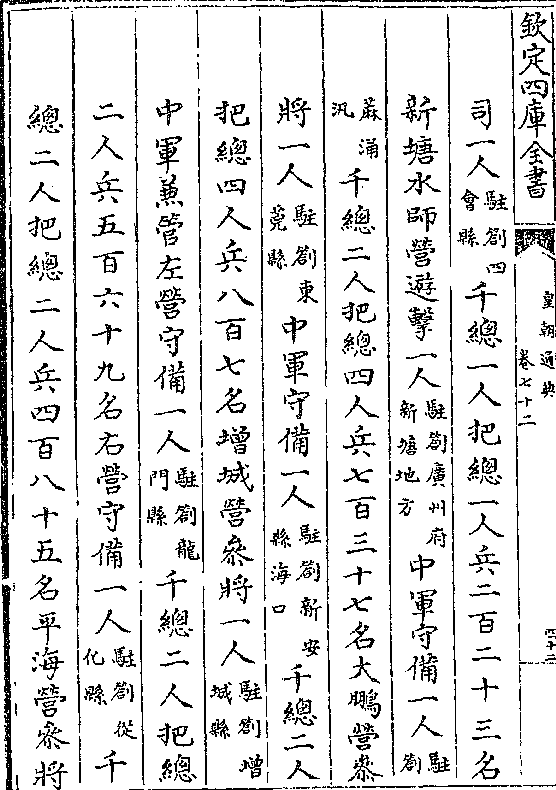 欽定四庫全書
皇朝通典
卷七十二
四十二
司一人駐劄四會縣千總一人把總一人兵二百二十三名
新塘水師營遊擊一人駐劄廣州府新塘地方中軍守備一人駐劄
蔴涌汛千總二人把總四人兵七百三十七名大鵬營叅
將一人駐劄東莞縣中軍守備一人駐劄新安縣海口千總二人
把總四人兵八百七名增城營叅將一人駐劄增城縣
中軍兼管左營守備一人駐劄龍門縣千總二人把總
二人兵五百六十九名右營守備一人駐劄從化縣千
總二人把總二人兵四百八十五名平海營叅將